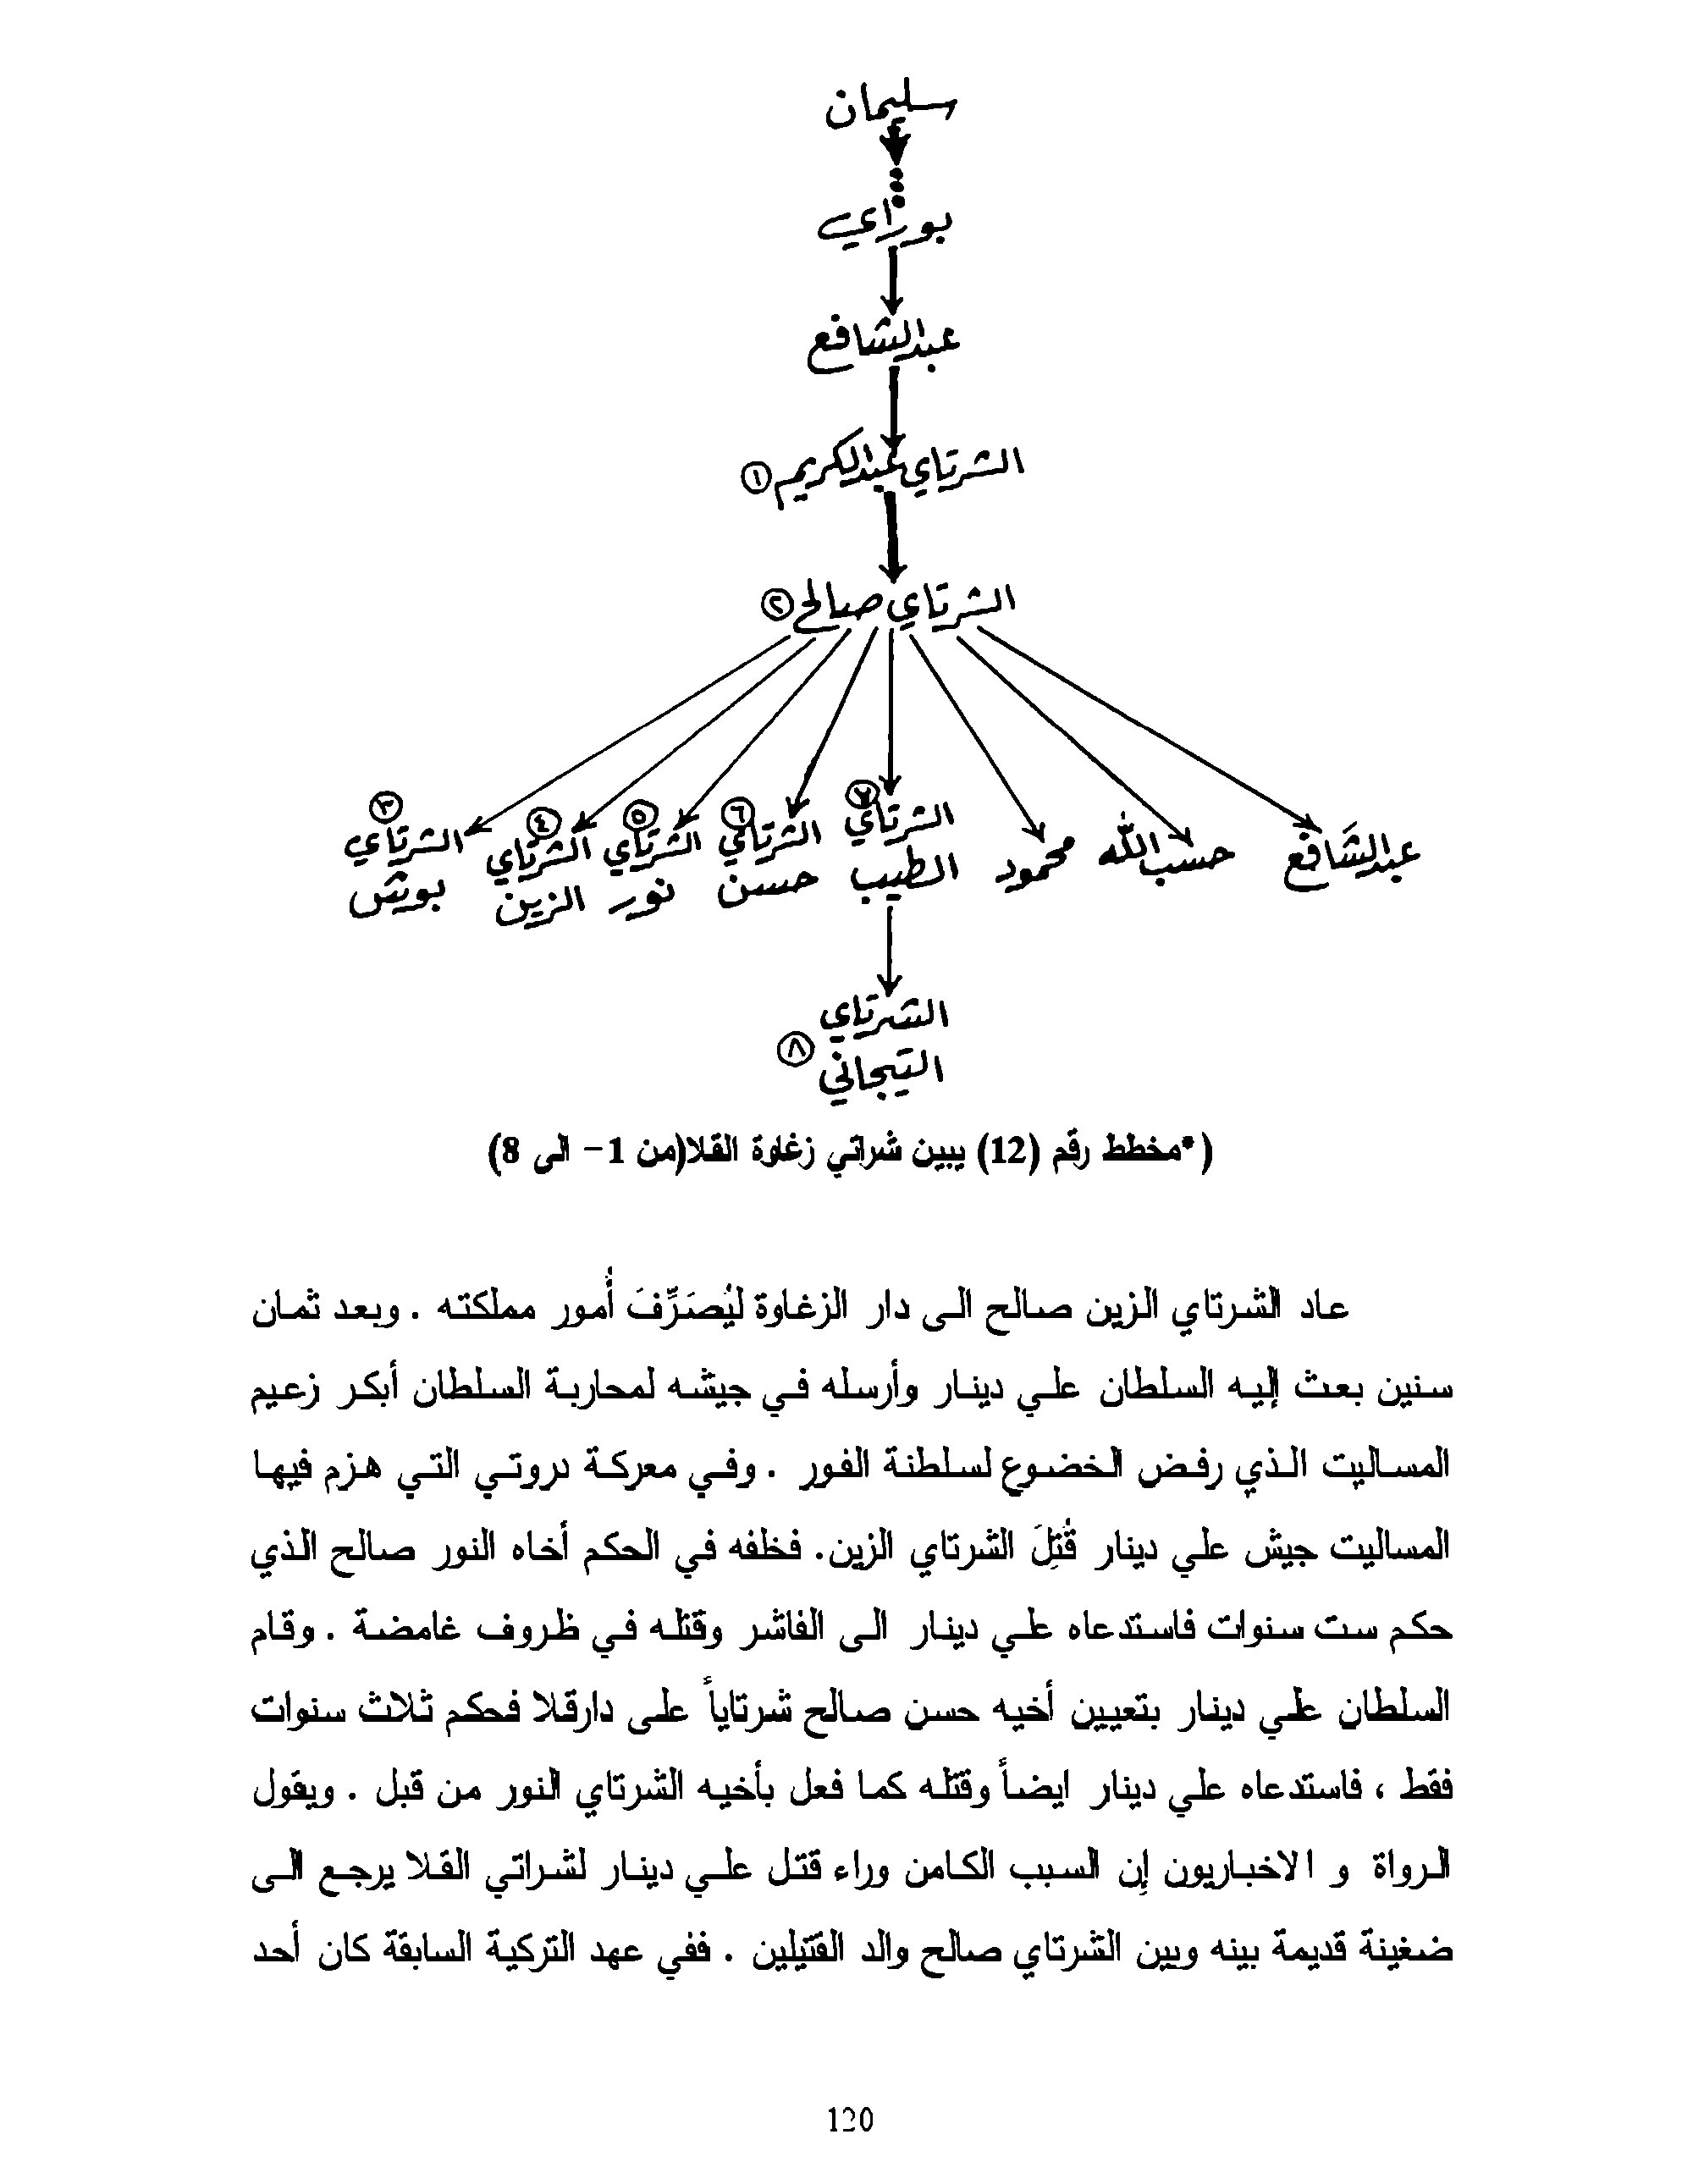 سليمان
بوراي
عبدالشافع
الشرتاي عبدالكريم ١
الشرتاي صالح ٢
٣ ٤ ٥ ٦ ٧
الشرتاي الشرتاي الشرتاي الشرتاي الشرتاي محمود حسب الله عبدالشافع
بوش الزين نور حسن الطيب
الشرتاي
التجاني ٨
(*مخطط رقم (12) يبين شراتي زغاوة القلا(من 1– الى 8)
عاد الشرتاي الزين صالح الى دار الزغاوة ليُصَرِّفَ أُمور مملكته . وبعد ثمان
سنين بعث إليه السلطان علي دينار وأرسله في جيشه لمحاربة السلطان أبكر زعيم
المساليت الذي رفض الخضوع لسلطنة الفور . وفي معركة دروتي التي هزم فيها
المساليت جيش علي دينار قُتِلَ الشرتاي الزين. فخلفه في الحكم أخاه النور صالح الذي
حكم ست سنوات فاستدعاه علي دينار الى الفاشر وقتله في ظروف غامضة . وقام
السلطان علي دينار بتعيين أخيه حسن صالح شرتاياً على دارقلا فحكم ثلاث سنوات
فقط ، فاستدعاه علي دينار ايضاً وقتله كما فعل بأخيه الشرتاي النور من قبل . ويقول
الرواة و الاخباريون إن السبب الكامن وراء قتل علي دينار لشراتي القلا يرجع الى
ضغينة قديمة بينه وبين الشرتاي صالح والد القتيلين . ففي عهد التركية السابقة كان أحد
120